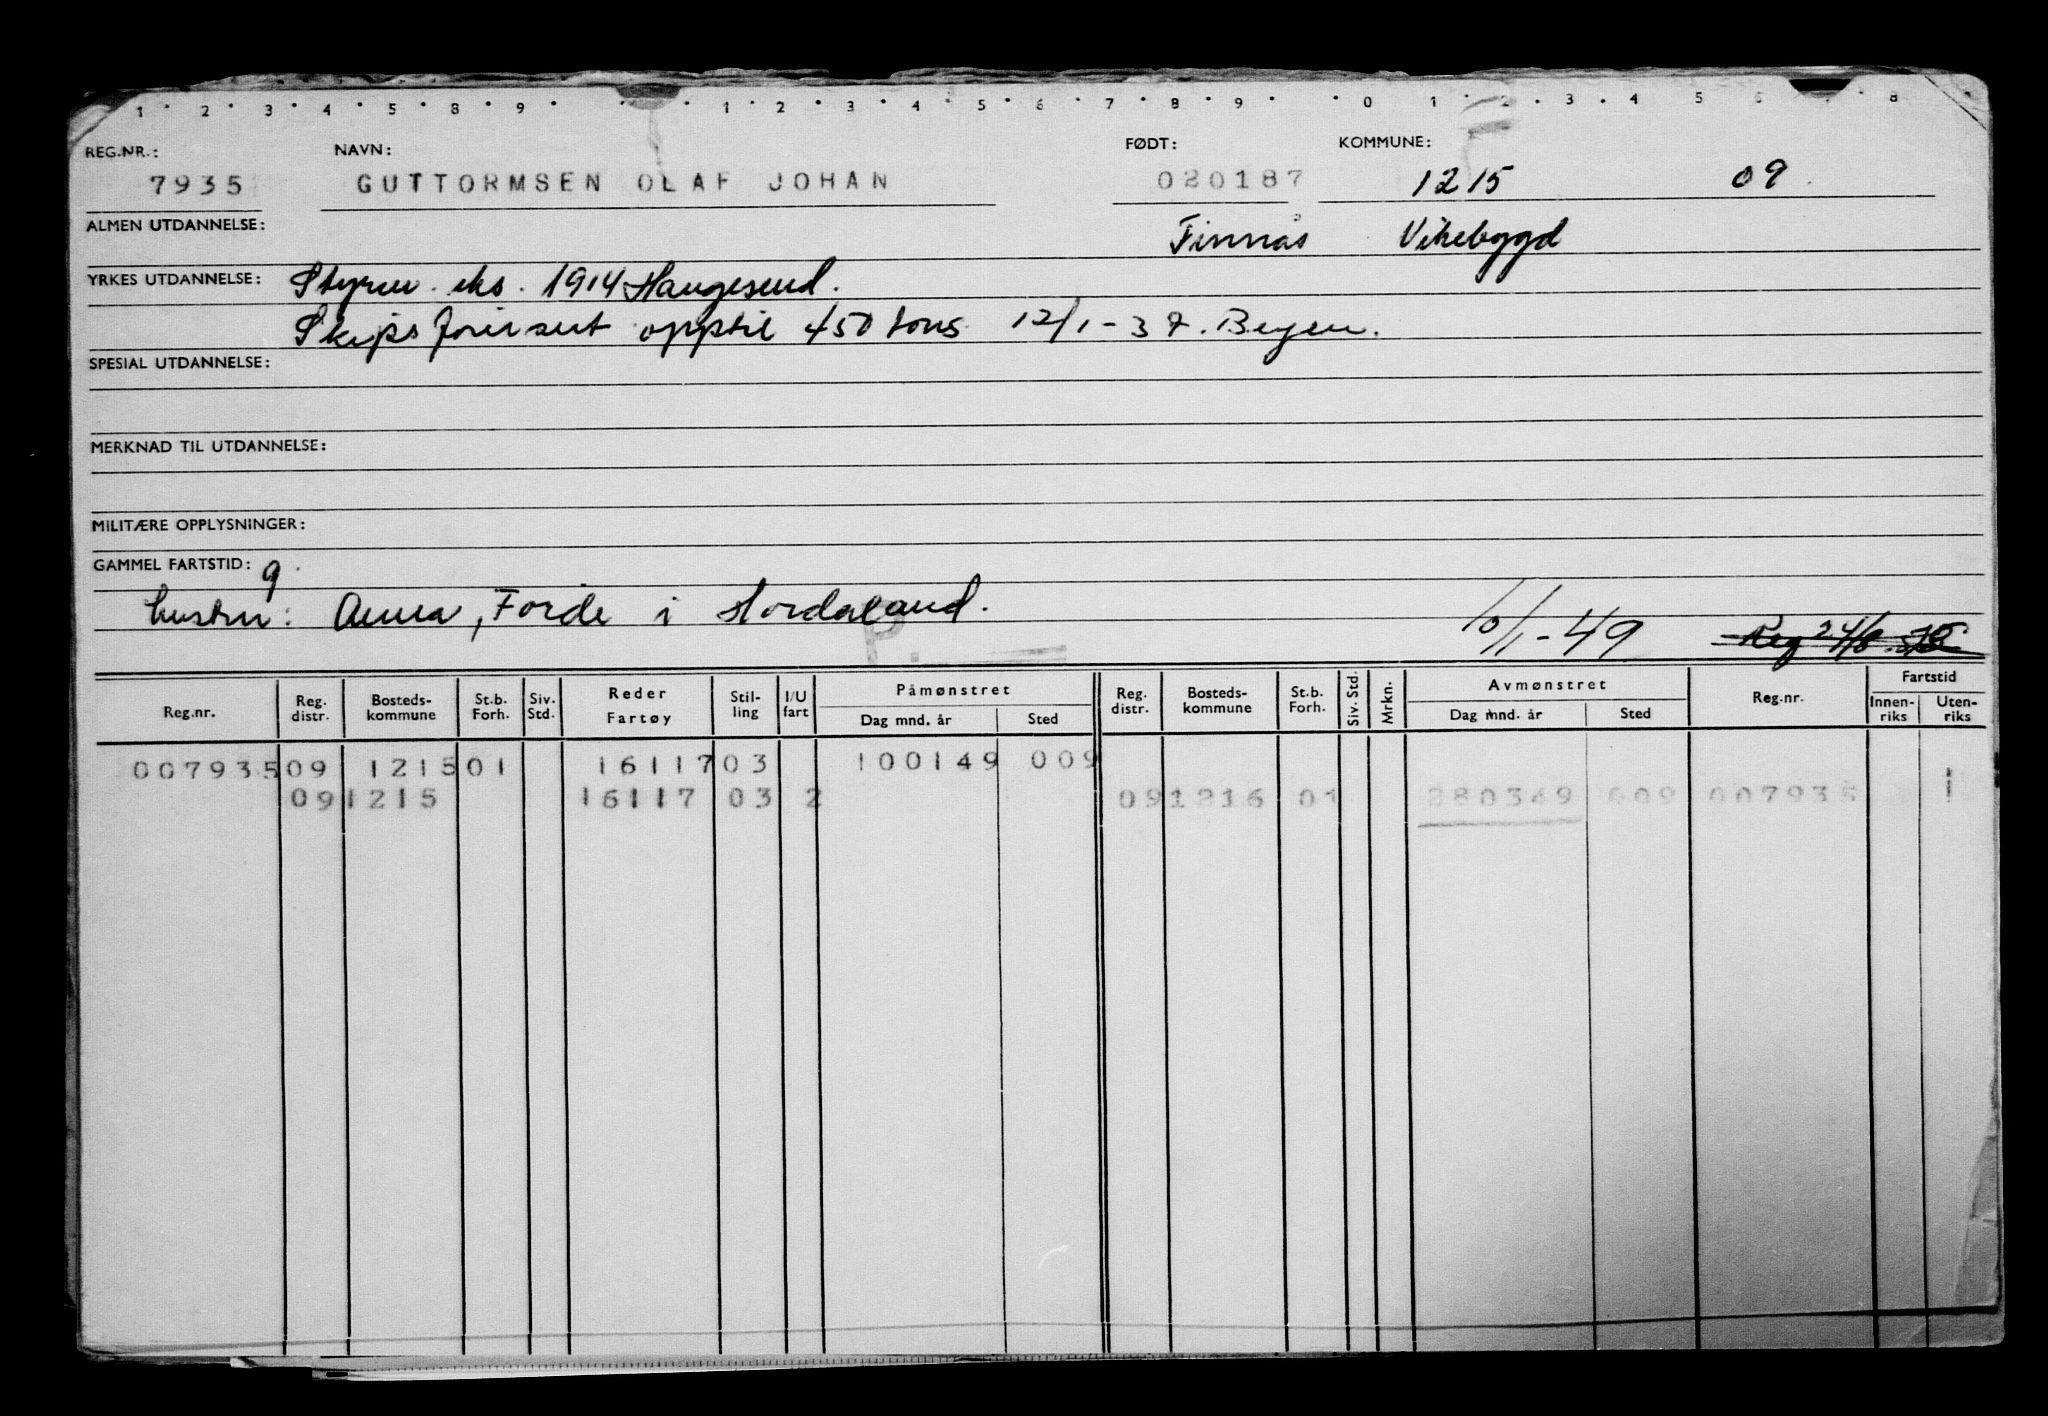 1 · 2 · 3 · 4 · 5 · 8 · 9 · · 1 · 2 · 3 · 4 · 5 · 6 · 7 · 8 · 9 · · 0 · 1 · 2 · 3 · 4 5 6 7 · 8
REG.NR.: NAVN: FØDT: KOMMUNE:
7935 GUTTORMSEN OLAF JOHAN 020187 1215 09
ALMEN UTDANNELSE: Finnås Vikebygd
YRKES UTDANNELSE: Styrm. eks. 1914 Haugesund.
Skipsførersert opptil 450 tons 12/1-37. Bergen.
SPESIAL UTDANNELSE:
MERKNAD TIL UTDANNELSE:
MILITÆRE OPPLYSNINGER:
GAMMEL FARTSTID: 9.
hustru: Anna, Førde i Hordaland.
P. 10/1-49 Reg 24/8
Reg.nr. Reg. distr. Bosteds-kommune St.b. Forh. Siv. Std. Reder Fartøy Stil-ling I/U fart Påmønstret Dag mnd. år Sted Reg. distr. Bosteds-kommune St.b. Forh. Siv. Std. Mrkn. Avmønstret Dag mnd. år Sted Reg.nr. Fartstid Innen-riks Uten-riks
007935 09 1215 01 16117 03 100149 009
09 1215 16117 03 2 09 1216 01 280349 009 007935 1